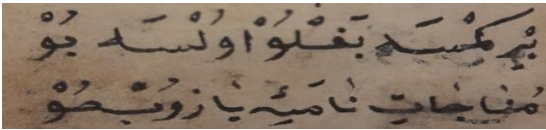 بِيرْ كِمْسَه بَغْلُوْ اوُلْسَه بُوْ
مُنَاجَاتِ نَامَئِ يَازُوبْ صُوْ